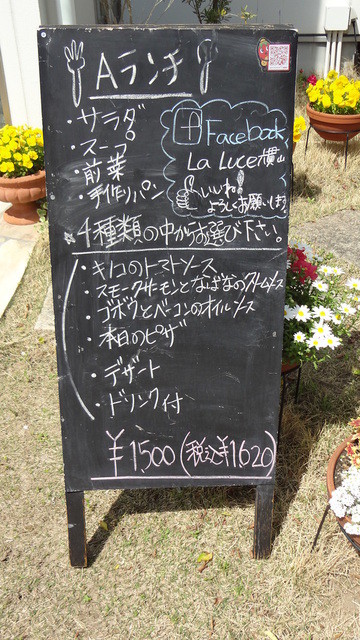 Aランチ
・サラダ
・スープ
・前菜
・手作りパン
Facebook
La Luce横山
いいね!
よろしくお願いします
※4種類の中からお選び下さい。
・キノコのトマトソース
・スモークサーモンとなばなのクリームソース
・ゴボウとベーコンのオイルソース
・本日のピザ
・デザート
・ドリンク付
¥1500(税込¥1620)